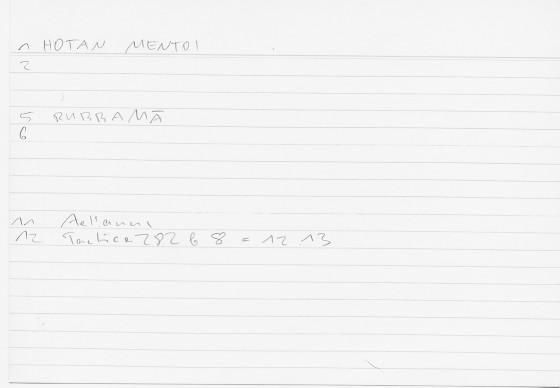 1 HOTAN MENTOI
2
5 RUBRAMĀ
6
11 Aelianus
12 Tactica 282 b 8 = 12 13